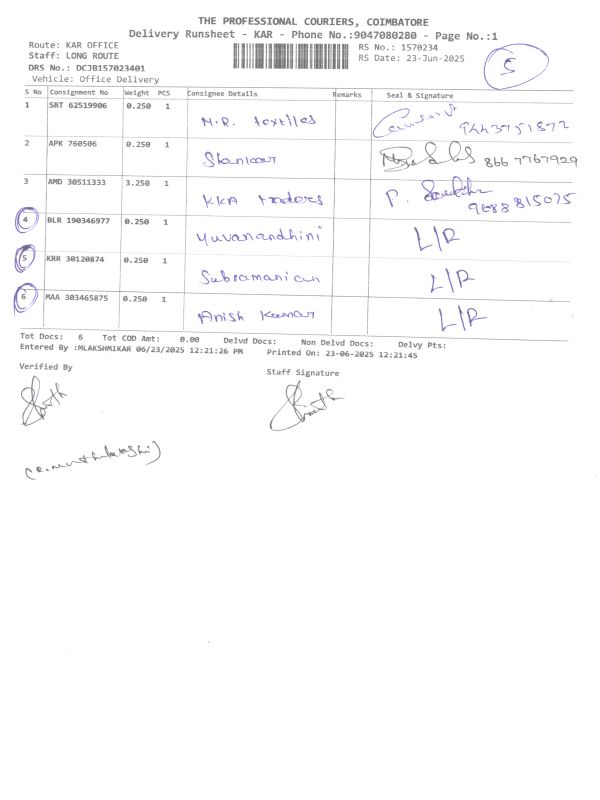 THE PROFESSIONAL COURIERS, COIMBATORE
Delivery Runsheet - KAR - Phone No.:9047080280 - Page No.:1
Route: KAR OFFICE RS No.: 1570234
Staff: LONG ROUTE RS Date: 23-Jun-2025
DRS No.: DCJB157023401
Vehicle: Office Delivery
5
S No Consignment No Weight PCS Consignee Details Remarks Seal & Signature
1 SRT 62519906 0.250 1 M.R. textiles 9443751872
2 APK 760506 0.250 1 866 7767929
3 AMD 30511333 3.250 1 KKA traders P. 9688815075
4 BLR 190346977 0.250 1 Yuvanandhini L/R
5 KRR 30120874 0.250 1 Subramanian L/R
6 MAA 303465875 0.250 1 Anish Kumar L/R
Tot Docs: 6 Tot COD Amt: 0.00 Delvd Docs: Non Delvd Docs: Delvy Pts:
Entered By :MLAKSHMIKAR 06/23/2025 12:21:26 PM Printed On: 23-06-2025 12:21:45
Verified By Staff Signature